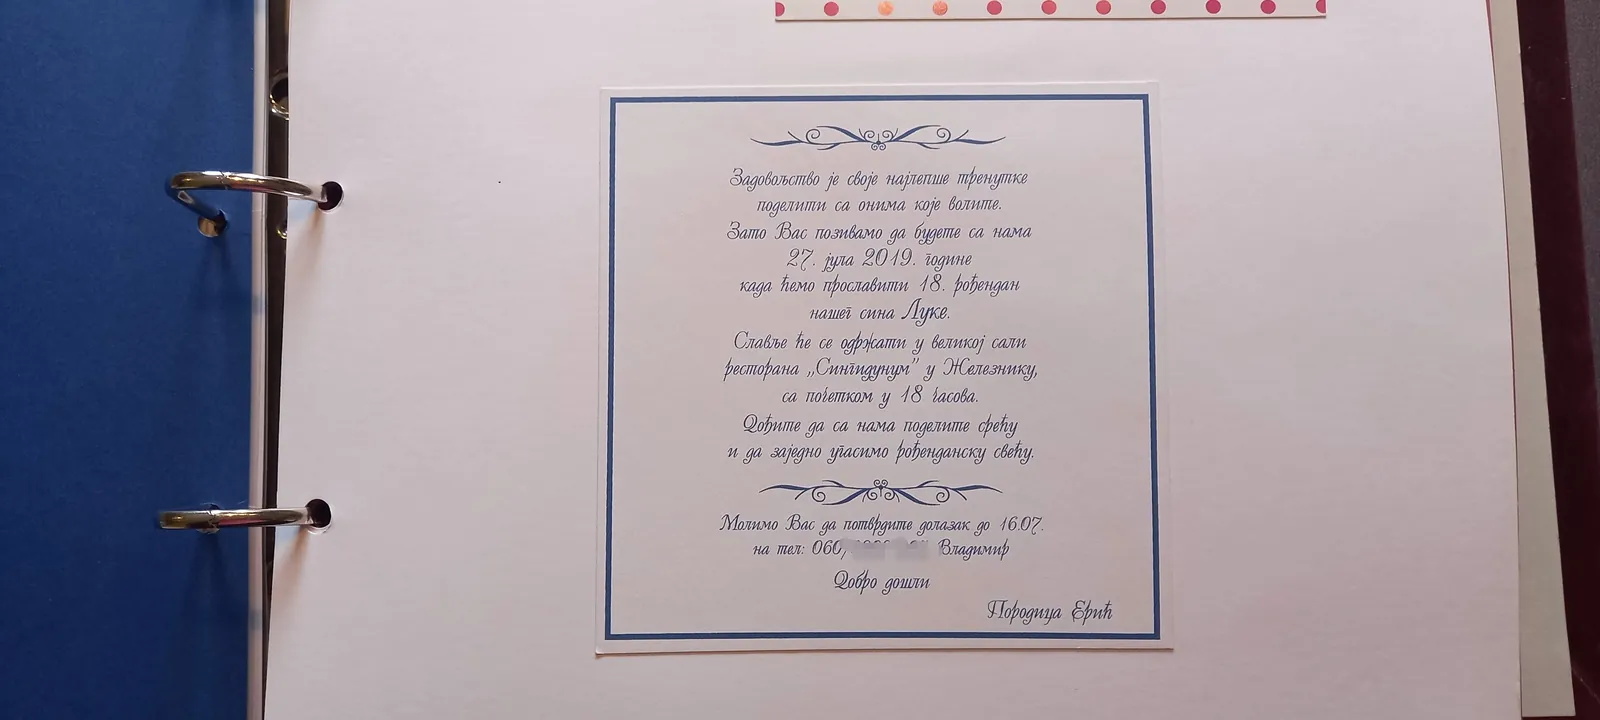 Задовољство је своје најлепше тренутке
поделити са онима које волите.
Зато Вас позивамо да будете са нама
27. јула 2019. године
када ћемо прославити 18. рођендан
нашег сина Луке.
Славље ће се одржати у великој сали
ресторана „Сингидунум" у Железнику,
са почетком у 18 часова.
Дођите да са нама поделите срећу
и да заједно угасимо рођенданску свећу.
Молимо Вас да потврдите долазак до 16.07.
на тел: 060/ Владимир
Добро дошли
Породица Ерић